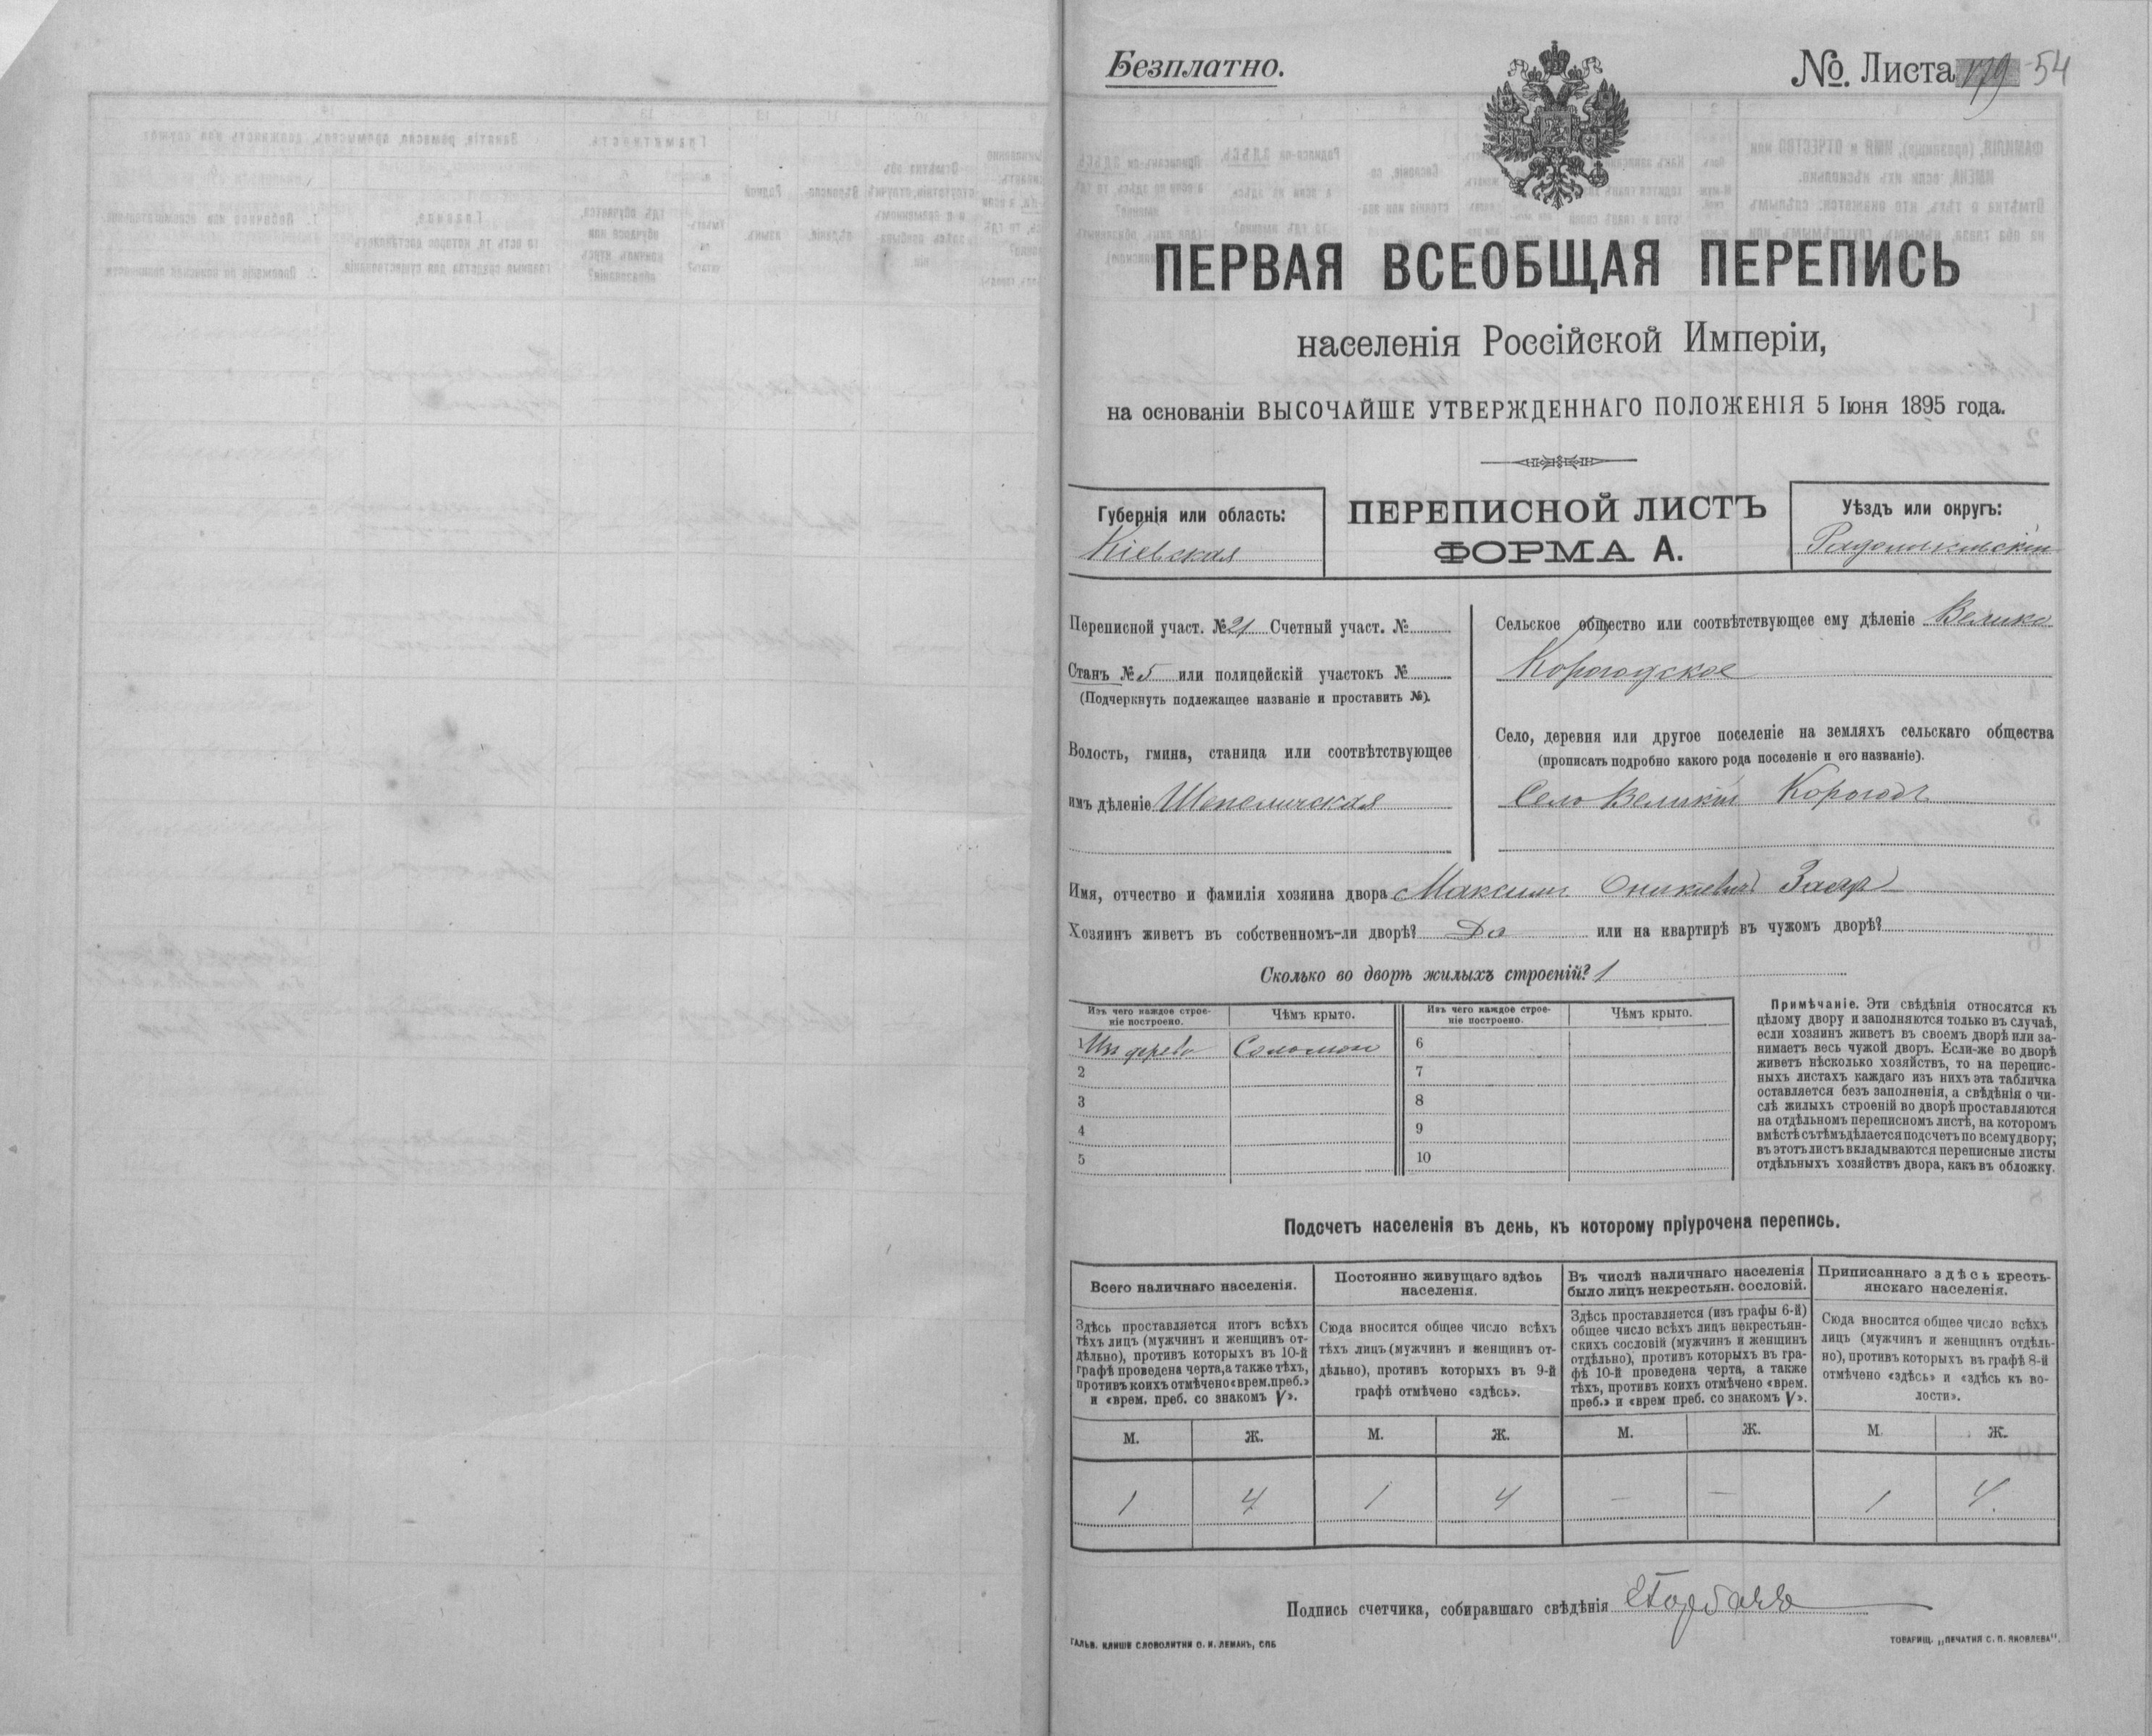 Безплатно.
№. Листа 179 54
ПЕРВАЯ ВСЕОБЩАЯ ПЕРЕПИСЬ
населенія Россійской Имперіи,
на основаніи ВЫСОЧАЙШЕ УТВЕРЖДЕННАГО ПОЛОЖЕНІЯ 5 Іюня 1895 года.
Губернія или область:
Кіевская
ПЕРЕПИСНОЙ ЛИСТЪ
ФОРМА А.
Уѣздъ или округъ:
Радомысльскій
Переписной участ. № 21 Счетный участ. №
Станъ № 5 или полицейскій участокъ №
(Подчеркнуть подлежащее названіе и проставить №).
Волость, гмина, станица или соотвѣтствующее
имъ дѣленіе Шепеличская
Сельское общество или соотвѣтствующее ему дѣленіе Велико
Корогодское
Село, деревня или другое поселеніе на земляхъ сельскаго общества
(прописать подробно какого рода поселеніе и его названіе).
Село Великій Корогодъ
Имя, отчество и фамилія хозяина двора Максимъ Оникіевъ Заяцъ
Хозяинъ живетъ въ собственномъ-ли дворѣ? Да или на квартирѣ въ чужомъ дворѣ?
Сколько во дворѣ жилыхъ строеній? 1
Изъ чего каждое строе-
ніе построено.
Чѣмъ крыто.
Изъ чего каждое строе-
ніе построено.
Чѣмъ крыто.
1 Изъ дерева Соломою 6
2 7
3 8
4 9
5 10
Примѣчаніе. Эти свѣдѣнія относятся къ
цѣлому двору и заполняются только въ случаѣ,
если хозяинъ живетъ въ своемъ дворѣ или за-
нимаетъ весь чужой дворъ. Если-же во дворѣ
живетъ нѣсколько хозяйствъ, то на перепис-
ныхъ листахъ каждаго изъ нихъ эта табличка
оставляется безъ заполненія, а свѣдѣнія о чи-
слѣ жилыхъ строеній во дворѣ проставляются
на отдѣльномъ переписномъ листѣ, на которомъ
вмѣстѣ съ тѣмъ дѣлается подсчетъ по всему двору;
въ этотъ листъ вкладываются переписные листы
отдѣльныхъ хозяйствъ двора, какъ въ обложку.
Подсчетъ населенія въ день, къ которому пріурочена перепись.
Всего наличнаго населенія.
Здѣсь проставляется итогъ всѣхъ
тѣхъ лицъ (мужчинъ и женщинъ от-
дѣльно), противъ которыхъ въ 10-й
графѣ проведена черта, а также тѣхъ,
противъ коихъ отмѣчено «врем. преб.»
и «врем. преб. со знакомъ V».
Постоянно живущаго здѣсь
населенія.
Сюда вносится общее число всѣхъ
тѣхъ лицъ (мужчинъ и женщинъ от-
дѣльно), противъ которыхъ въ 9-й
графѣ отмѣчено «здѣсь».
Въ числѣ наличнаго населенія
было лицъ некрестьян. сословій.
Здѣсь проставляется (изъ графы 6-й)
общее число всѣхъ лицъ некрестьян-
скихъ сословій (мужчинъ и женщинъ
отдѣльно), противъ которыхъ въ гра-
фѣ 10-й проведена черта, а также
тѣхъ, противъ коихъ отмѣчено «врем.
преб.» и «врем преб. со знакомъ V».
Приписаннаго здѣсь кресть-
янскаго населенія.
Сюда вносится общее число всѣхъ
лицъ (мужчинъ и женщинъ отдѣль-
но), противъ которыхъ въ графѣ 8-й
отмѣчено «здѣсь» и «здѣсь къ во-
лости».
М. Ж. М. Ж. М. Ж. М. Ж.
1 4 1 4 — — 1 4.
Подпись счетчика, собиравшаго свѣдѣнія
ГАЛЬВ. КЛИШЕ СЛОВОЛИТНИ О. И. ЛЕМАНЪ, СПБ
ТОВАРИЩ. „ПЕЧАТНЯ С. П. ЯКОВЛЕВА".